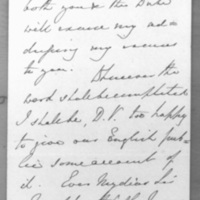 both you & the Duke
will excuse my ad-
dressing my excuses
to you. Whenever the
work shall be completed
I shall be, D.V. too happy
to give our English pub-
lic some account of
it. Ever My dear Sir